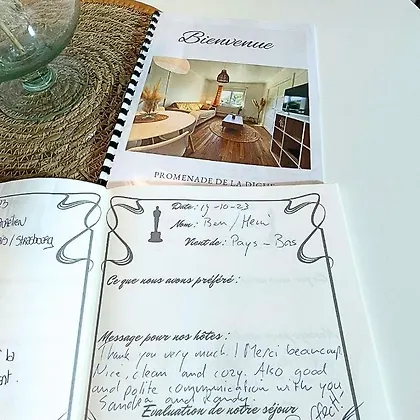 Bienvenue
PROMENADE DE LA DIGUE
/Strasbourg
Date: 19-10-23
Nom: Ben / Henri
Vient de: Pays-Bas
Ce que nous avons préféré:
Message pour nos hôtes:
Thank you very much! Merci beaucoup
Nice, clean and cozy. Also good
and polite communication with you
Sandra and Randy.
Evaluation de notre séjour